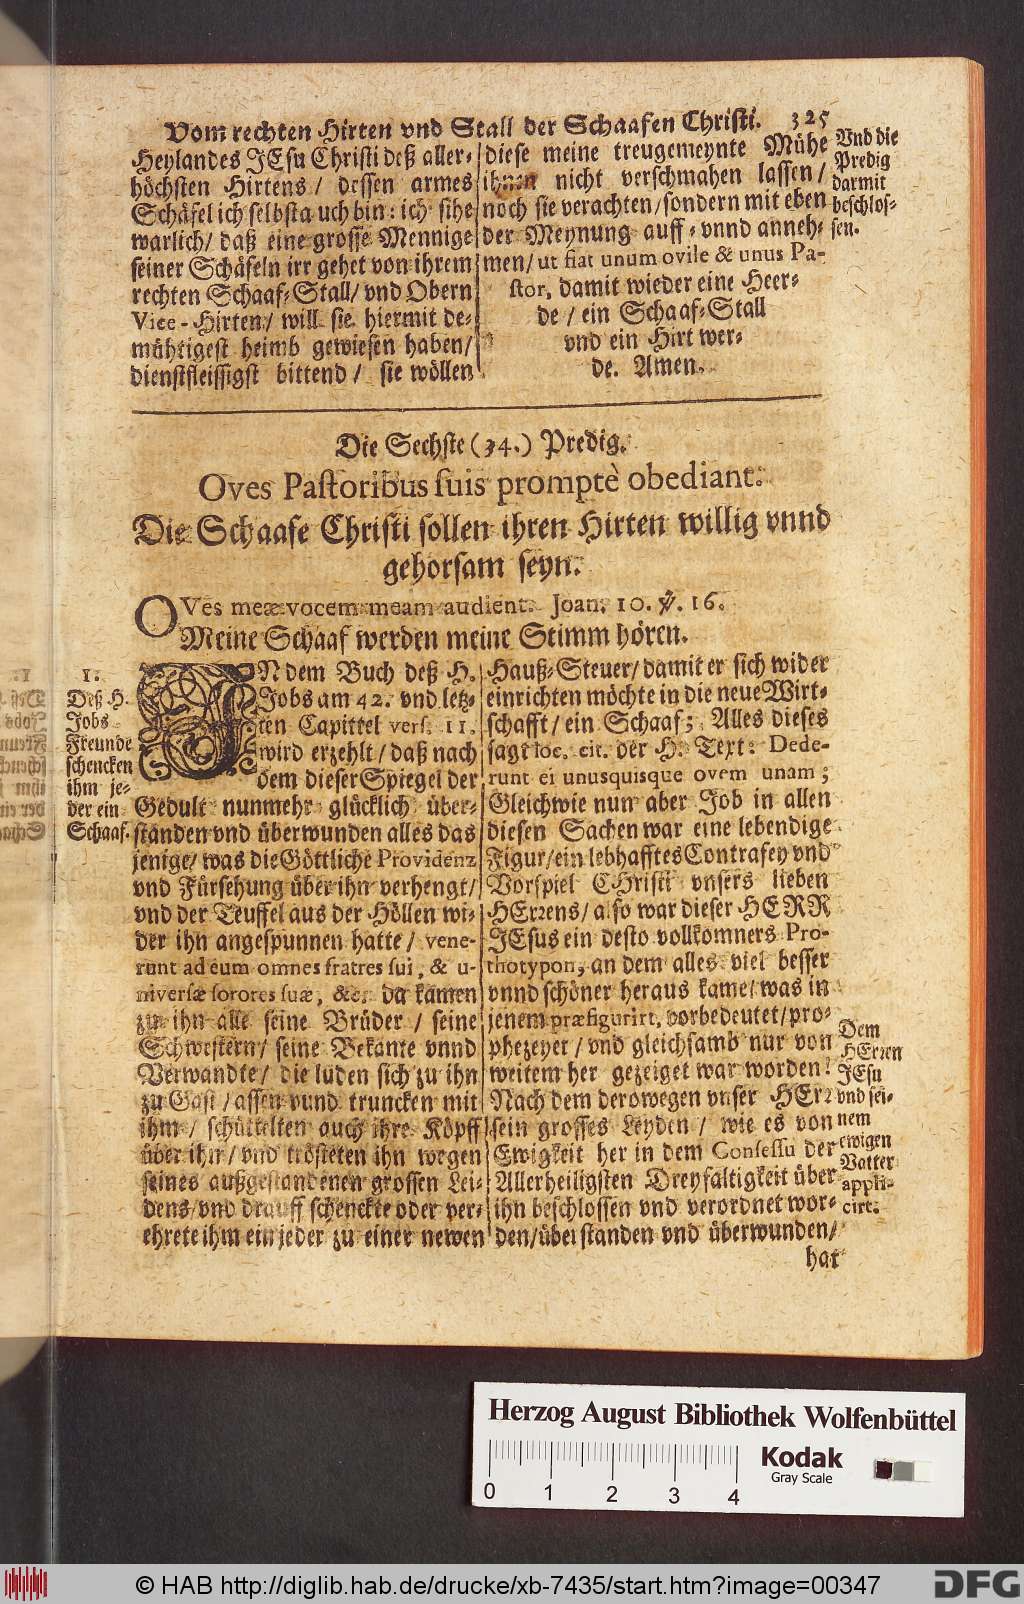 Vom rechten Hirten vnd Stall der Schaafen Christi. 325
Heylandes JEsu Christi deß aller-
höchsten Hirtens / dessen armes
Schäfel ich selbst auch bin: ich sihe
warlich / daß eine grosse Mennige
seiner Schäfeln irr gehet von ihrem
rechten Schaaf-Stall / vnd Obern
Vice-Hirten / will sie hiermit de-
mühtigest heimb gewiesen haben /
dienstfleissigst bittend / sie wöllen
diese meine treugemeynte Mühe
ihnen nicht verschmahen lassen /
noch sie verachten / sondern mit eben
der Meynung auff- vnnd anneh-
men / ut fiat unum ovile & unus Pa-
stor, damit wieder eine Heer-
de / ein Schaaf-Stall
vnd ein Hirt wer-
de. Amen.
Vnd die
Predig
darmit
beschlos-
sen.
Die Sechste (34.) Predig.
Oves Pastoribus suis promptè obediant.
Die Schaafe Christi sollen ihren Hirten willig vnnd
gehorsam seyn.
OVes meæ vocem meam audient. Joan. 10. ℣. 16.
Meine Schaaf werden meine Stimm hören.
1.
Deß H.
Jobs
Freunde
schencken
ihm je-
der ein
Schaaf.
IN dem Buch deß H.
Jobs am 42. vnd letz-
ten Capittel vers. 11.
wird erzehlt / daß nach
dem dieser Spiegel der
Gedult nunmehr glücklich über-
standen vnd überwunden alles das
jenige / was die Göttliche Providenz
vnd Fürsehung über ihn verhengt /
vnd der Teuffel aus der Höllen wi-
der ihn angespunnen hatte / vene-
runt ad eum omnes fratres sui, & u-
niversæ sorores suæ, &c. da kamen
zu ihn alle seine Brüder / seine
Schwestern / seine Bekante vnnd
Verwandte / die luden sich zu ihn
zu Gast / assen vnnd truncken mit
ihm / schüttelten auch ihre Köpff
über ihn / vnd trösteten ihn wegen
seines außgestandenen grossen Lei-
dens / vnd drauff schenckte oder ver-
ehrete ihm ein jeder zu einer newen
Hauß-Steuer / damit er sich wider
einrichten möchte in die neue Wirt-
schafft / ein Schaaf; Alles dieses
sagt loc. cit. der H. Text: Dede-
runt ei unusquisque ovem unam;
Gleichwie nun aber Job in allen
diesen Sachen war eine lebendige
Figur / ein lebhafftes Contrafey vnd
Vorspiel CHristi vnsers lieben
HErrens / also war dieser HERR
JEsus ein desto vollkomners Pro-
thotypon, an dem alles viel besser
vnnd schöner heraus kame / was in
jenem præfigurirt, vorbedeutet / pro-
phezeyet / vnd gleichsamb nur von
weitem her gezeiget war worden!
Nach dem derowegen vnser HErr
sein grosses Leyden / wie es von
Ewigkeit her in dem Consessu der
Allerheiligsten Dreyfaltigkeit über
ihn beschlossen vnd verordnet wor-
den / überstanden vnd überwunden /
hat
Dem
HErren
JEsu
vnd sei-
nem
ewigen
Vatter
appli-
cirt.
Herzog August Bibliothek Wolfenbüttel
Kodak
Gray Scale
0 1 2 3 4
© HAB http://diglib.hab.de/drucke/xb-7435/start.htm?image=00347
DFG